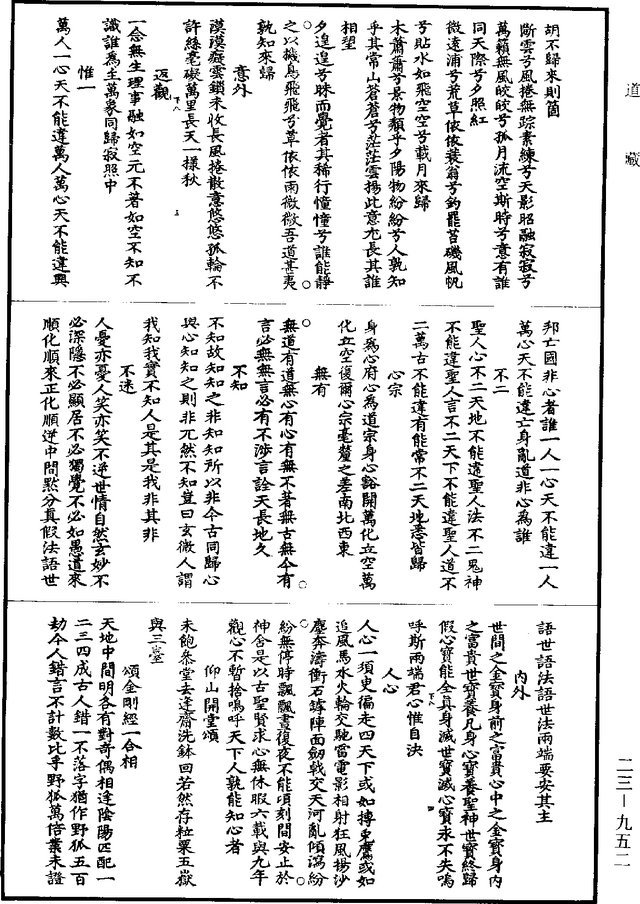 道藏
胡不歸來則箇
斷雲兮風捲無踪素練兮天影昭融寂寂兮
萬籟無風皎皎兮孤月流空斯時兮意有誰
同天際兮夕照紅
微遠浦兮荒草依依蓑翁兮釣罷苔磯風帆
兮貼水如飛空空兮載月來歸
木蕭蕭兮景物頹乎夕陽物紛紛兮人孰知
乎其常山蒼蒼兮茫茫雲揚此意尤長其誰
相望
夕遑遑兮昧而覺者其稀行憧憧兮誰能靜
之以機鳥飛飛兮草依依雨微微吾道甚夷
孰知來歸
意外
漠漠癡雲鎖未收長風捲散意悠悠孤輪不
許絲毫礙萬里長天一樣秋
返觀
一念無生理事融如空元不著如空不知不
識誰為主萬象同歸寂照中
惟一
萬人一心天不能違萬人萬心天不能違興
邦亡國非心者誰一人一心天不能違一人
萬心天不能違亡身亂道非心為誰
不二
聖人心不二天地不能違聖人法不二鬼神
不能違聖人言不二天下不能違聖人道不
二萬古不能違有能常不二天地悉皆歸
心宗
身為心府心為道宗身心豁開萬化立空萬
化立空復爾心宗毫釐之差南北西東
無有
無道有道無心有心有無不著無古無今有
言必無無言必有不涉言詮天長地久
不知
不知故知知之非知知所以非今古同歸心
與心知知之則非兀然不知豈曰玄微人謂
我知我實不知人是其是我非其非
不迷
人憂亦憂人笑亦笑不逆世情自然玄妙不
必深隱不必顯居不必獨覺不必如愚道來
順化順來正化順逆中間默分真假法語世
語世語法語世法兩端要安其主
內外
世間之金寶身前之富貴心中之金寶身內
之富貴世寶養凡身心寶養聖神世寶終歸
假心寶能全真身滅世寶滅心寶永不失嗚
呼斯兩端君心惟自決
人心
人心一須臾徧走四天下或如摶兔鷹或如
追風馬水火輪交馳雷電影相射狂風揚沙
塵奔濤衝石罅陣面劒戟交天河亂傾瀉紛
紛無停時飄飄晝復夜不能頃刻間安止於
神舍是以古聖賢求心無休暇六載與九年
觀心不暫捨嗚呼天下人孰能知心者
仰山開堂頌
未飽叅堂去逢齋洗鉢回若然存粒粟五嶽
與三臺
頌金剛經一合相
天地中間明各有對奇偶相逢陰陽匹配一
二三四成古人錯一不落字猶作野狐五百
劫今人錯言不計數比乎野狐萬倍業未證
二三—九五二